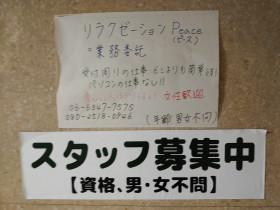 リラクゼーション Peace
(ピース)
業務委託
受付周りの仕事 どこよりも簡単です!
パソコンの仕事なし!!
女性歓迎
06-6347-7575
080-2518-0946
(年齢 男女不問)
スタッフ募集中
【資格、男・女不問】